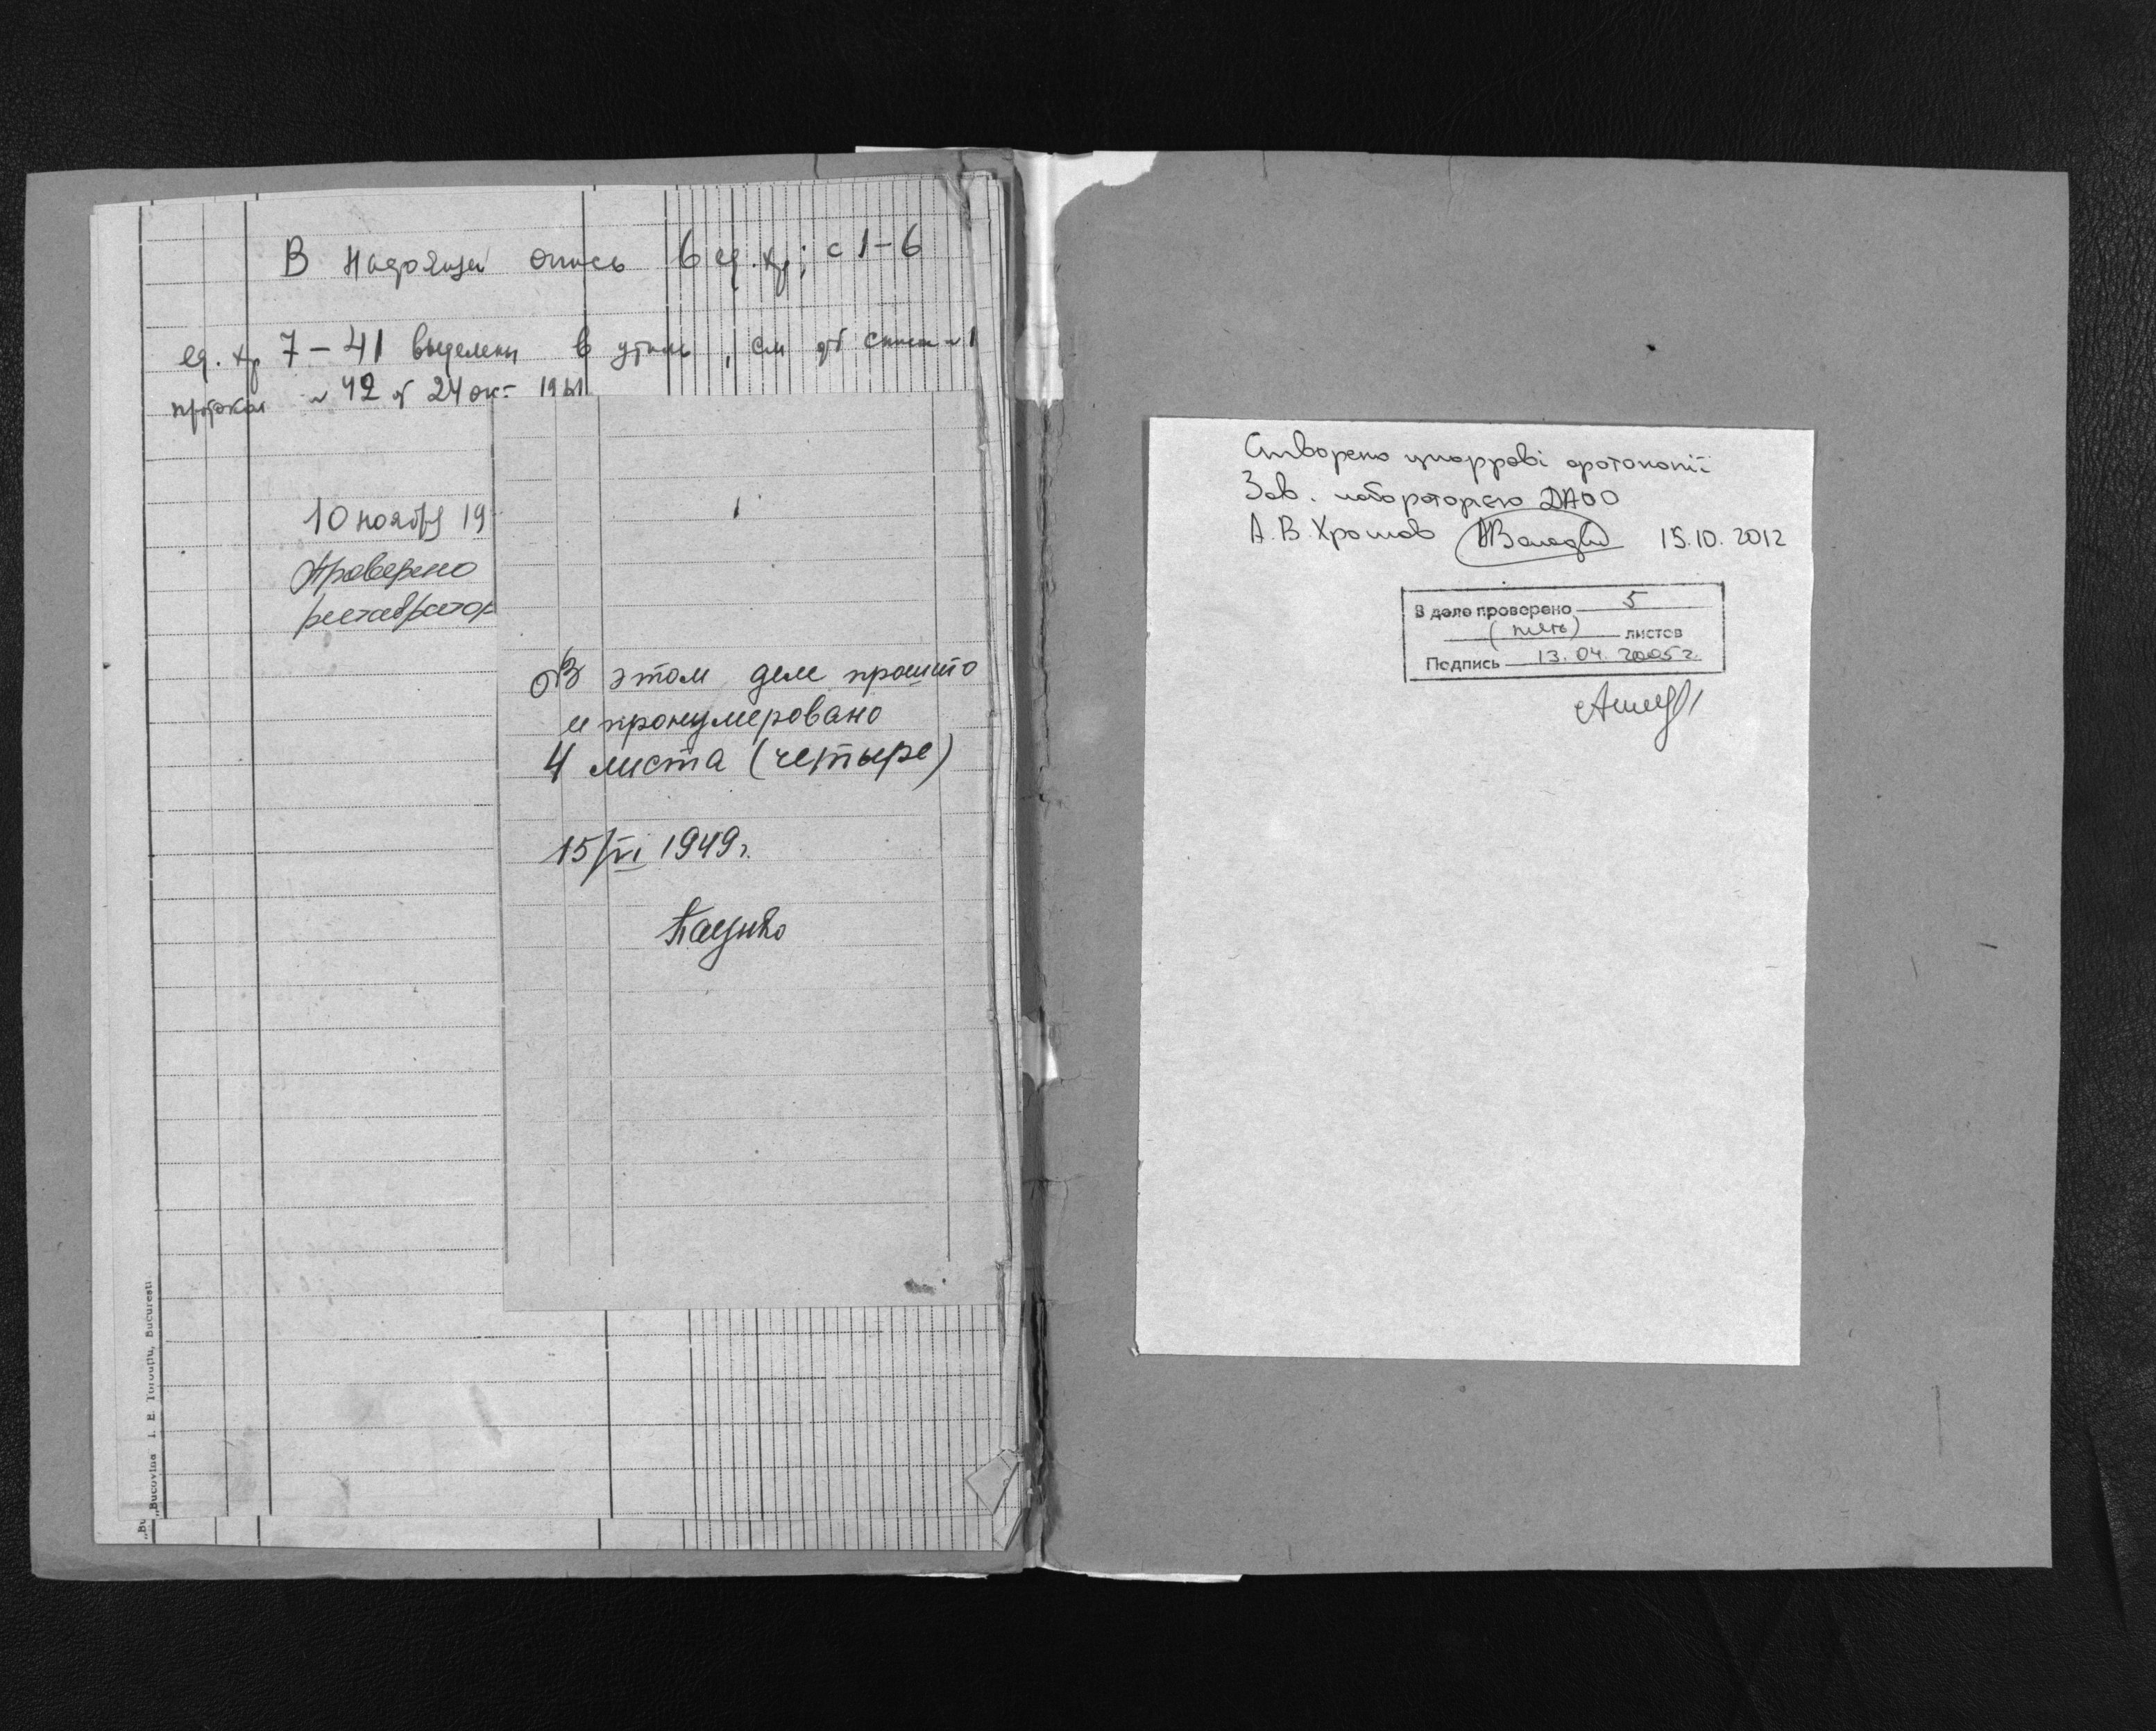 В настоящей опись 6 ед. хр; с 1-6
ед. хр 7-41 выделены в утиль, см
протокол № 42 от 24 окт 1961
10 ноября 19
Проверено
реставратор
В этом деле прошито
и пронумеровано
4 листа (четыре)
15/VI 1949 г.
"Bucovina I. E. Toroupu, Bucuresti
Створено цифрові фотокопії
Зав. лабораторією ДАОО
А. В. Хромов 15.10.2012
В деле проверено 5
(пять) листов
Подпись 13.04.2005 г.